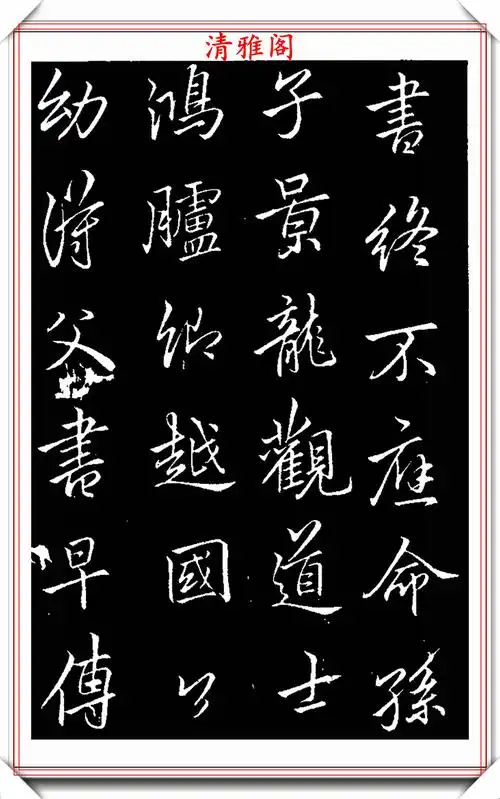 清雅阁
書終不應命孫
子景龍觀道士
鴻臚卿越國公
幼得父書早傳